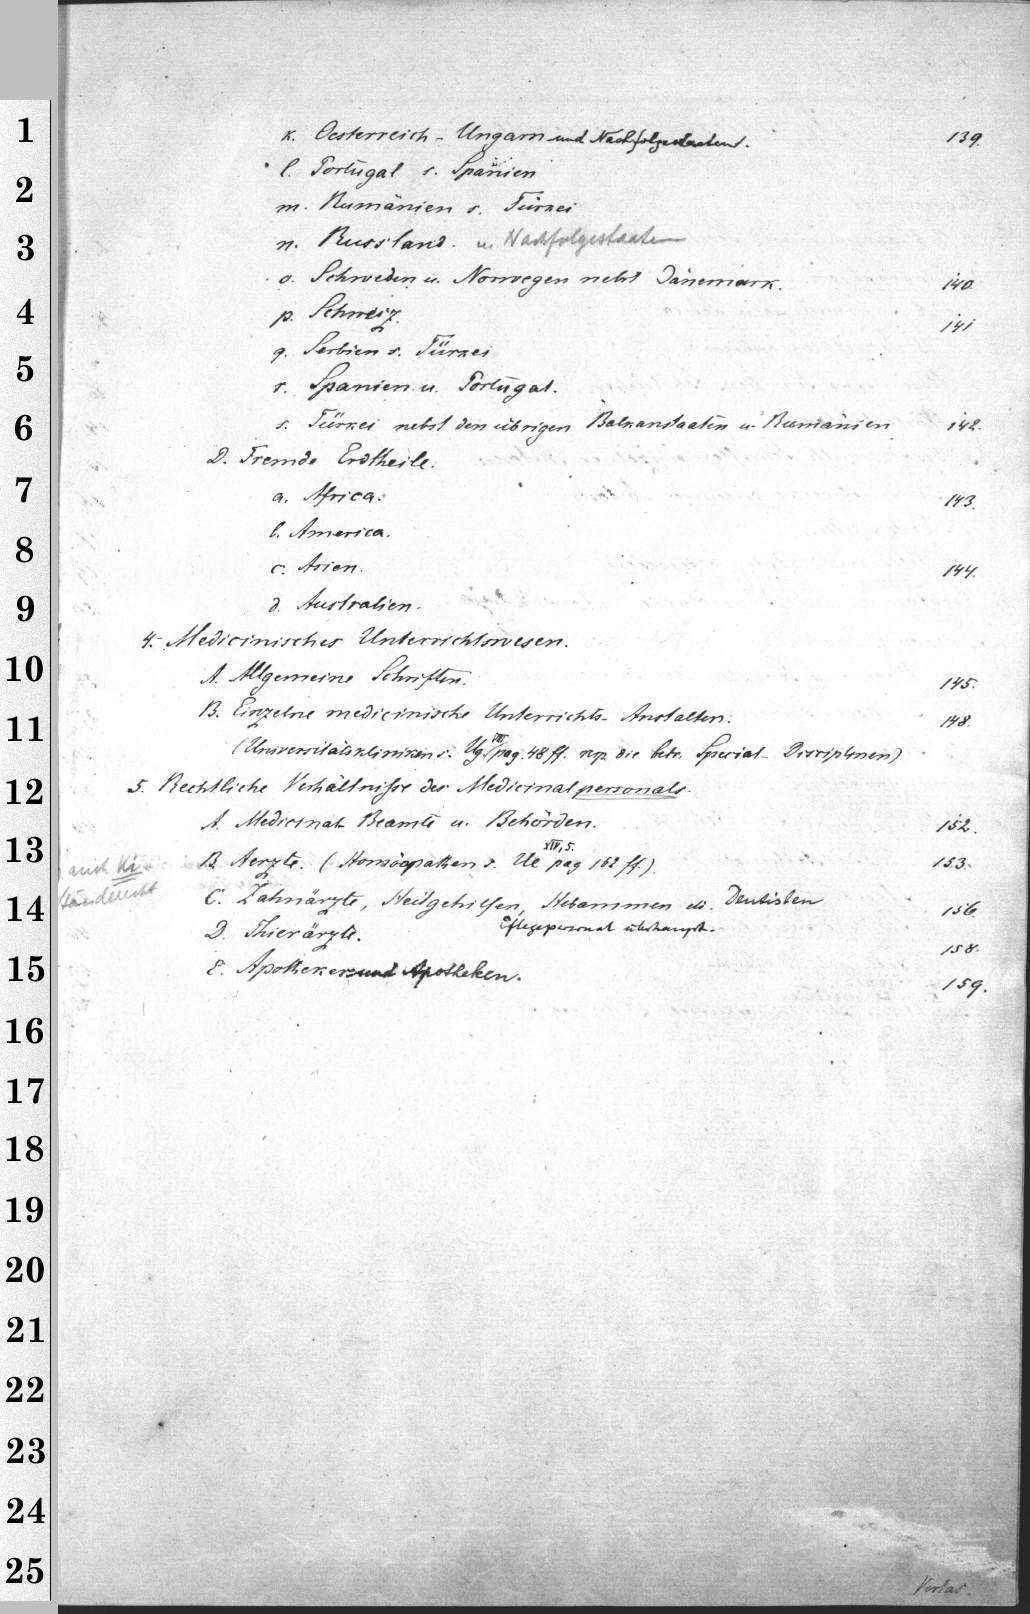 k. Oesterreich-Ungarn und Nachfolgestaaten. 139.
l. Portugal s. Spanien
m. Rumänien s. Türkei
n. Russland. u. Nachfolgestaaten
o. Schweden u. Norwegen nebst Dänemark. 140.
p. Schweiz. 141
q. Serbien s. Türkei
r. Spanien u. Portugal.
s. Türkei nebst den übrigen Balkanstaaten u. Rumänien 142.
D. Fremde Erdtheile.
a. Africa. 143.
b. America.
c. Asien. 144.
d. Australien.
4. Medicinisches Unterrichtswesen.
A. Allgemeine Schriften. 145.
B. Einzelne medicinische Unterrichts-Anstalten. 148.
(Universitätskliniken s. Ug VII, pag. 48 ff. resp. die betr. Special-Disciplinen)
5. Rechtliche Verhältnisse des Medicinalpersonals.
A. Medicinal-Beamte u. Behörden. 152.
B. Aerzte. (Homöopathen s. Ue XIV, 5. pag 162 ff.) 153.
auch Ki
Ständerecht
C. Zahnärzte, Heilgehilfen, Hebammen etc. Dentisten 156.
Pflegepersonal überhaupt.
D. Thierärzte. 158.
E. Apotheker und Apotheken. 159.
1
2
3
4
5
6
7
8
9
10
11
12
13
14
15
16
17
18
19
20
21
22
23
24
25